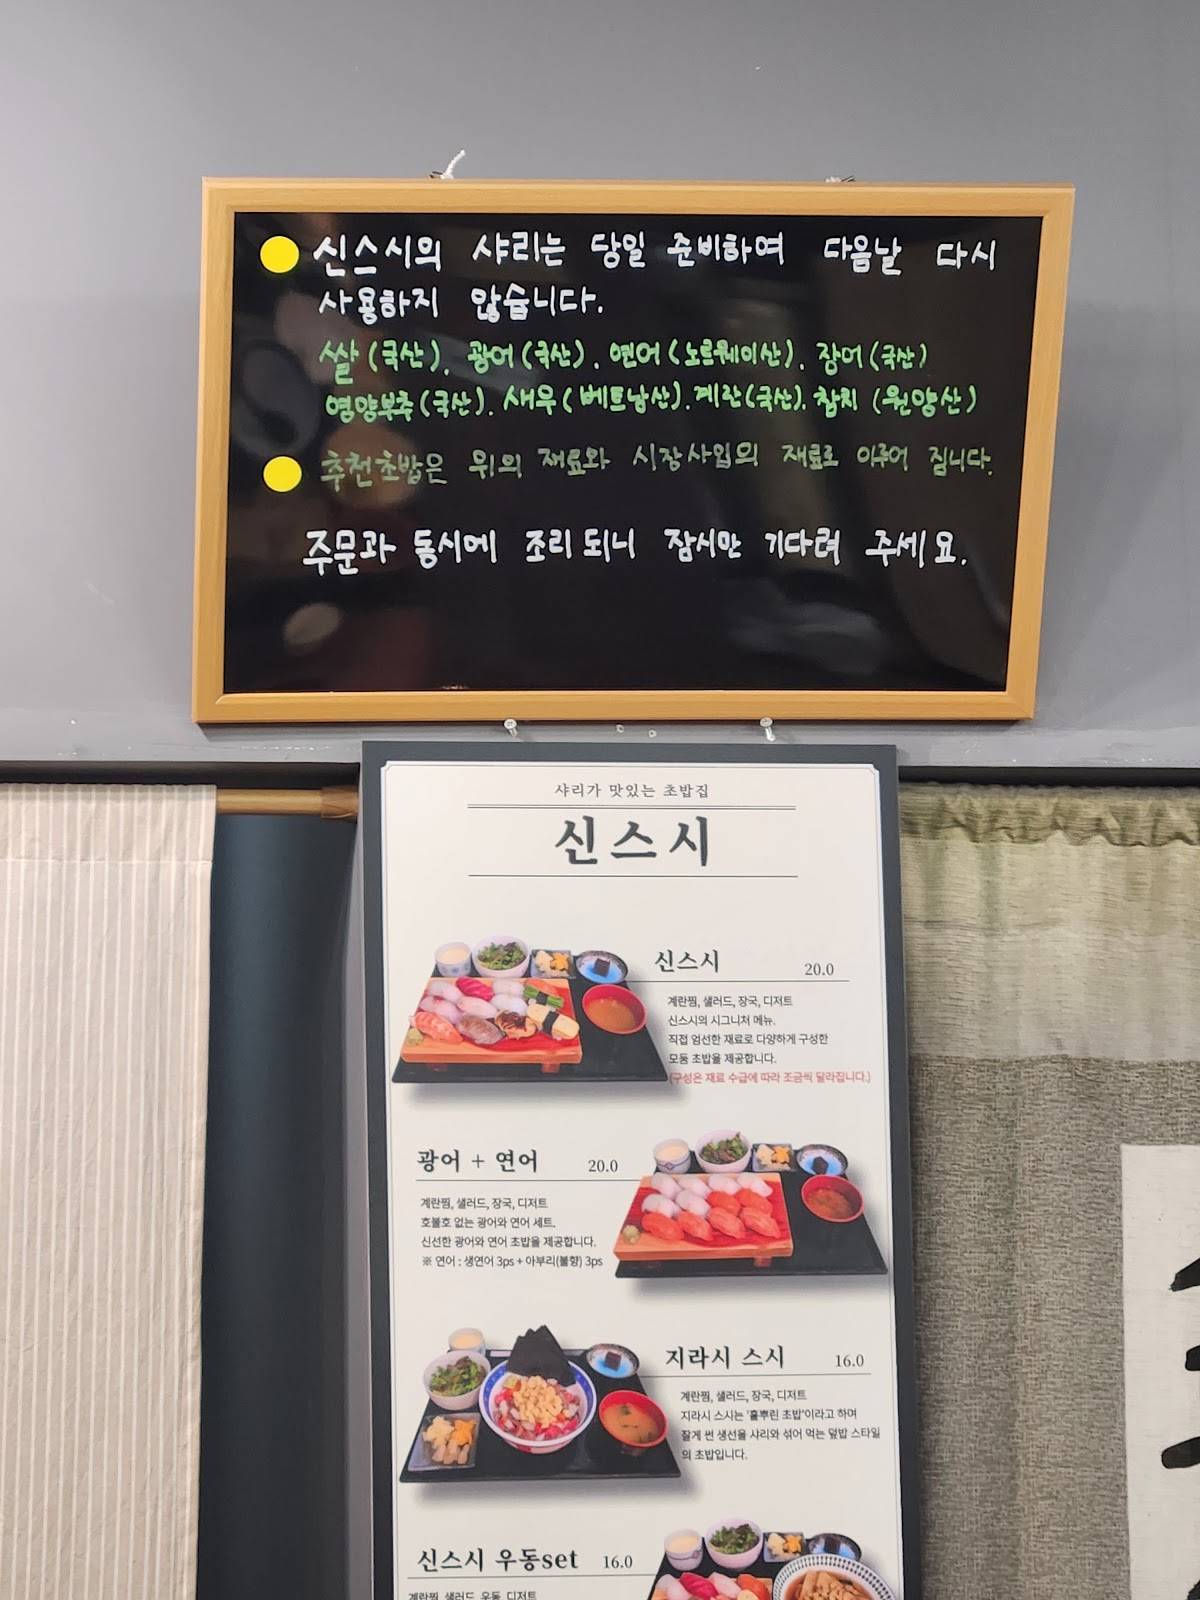 신스시의 샤리는 당일 준비하여 다음날 다시
사용하지 않습니다.
쌀(국산). 광어(국산). 연어(노르웨이산). 장어(국산)
영양부추(국산). 새우(베트남산). 계란(국산). 참치 (원양산)
추천초밥은 위의 재료와 시장사입의 재료로 이루어 집니다.
주문과 동시에 조리되니 잠시만 기다려 주세요.
샤리가 맛있는 초밥집
신스시
신스시 20.0
계란찜, 샐러드, 장국, 디저트
신스시의 시그니처 메뉴.
직접 엄선한 재료로 다양하게 구성한
모둠 초밥을 제공합니다.
(구성은 재료 수급에 따라 조금씩 달라집니다.)
광어 + 연어 20.0
계란찜, 샐러드, 장국, 디저트
호불호 없는 광어와 연어 세트.
신선한 광어와 연어 초밥을 제공합니다.
※ 연어 : 생연어 3ps + 아부리(불향) 3ps
지라시 스시 16.0
계란찜, 샐러드, 장국, 디저트
지라시 스시는 '흩뿌린 초밥'이라고 하며
잘게 썬 생선을 샤리와 섞어 먹는 덮밥 스타일
의 초밥입니다.
신스시 우동set 16.0
계란찜, 샐러드, 우동, 디저트